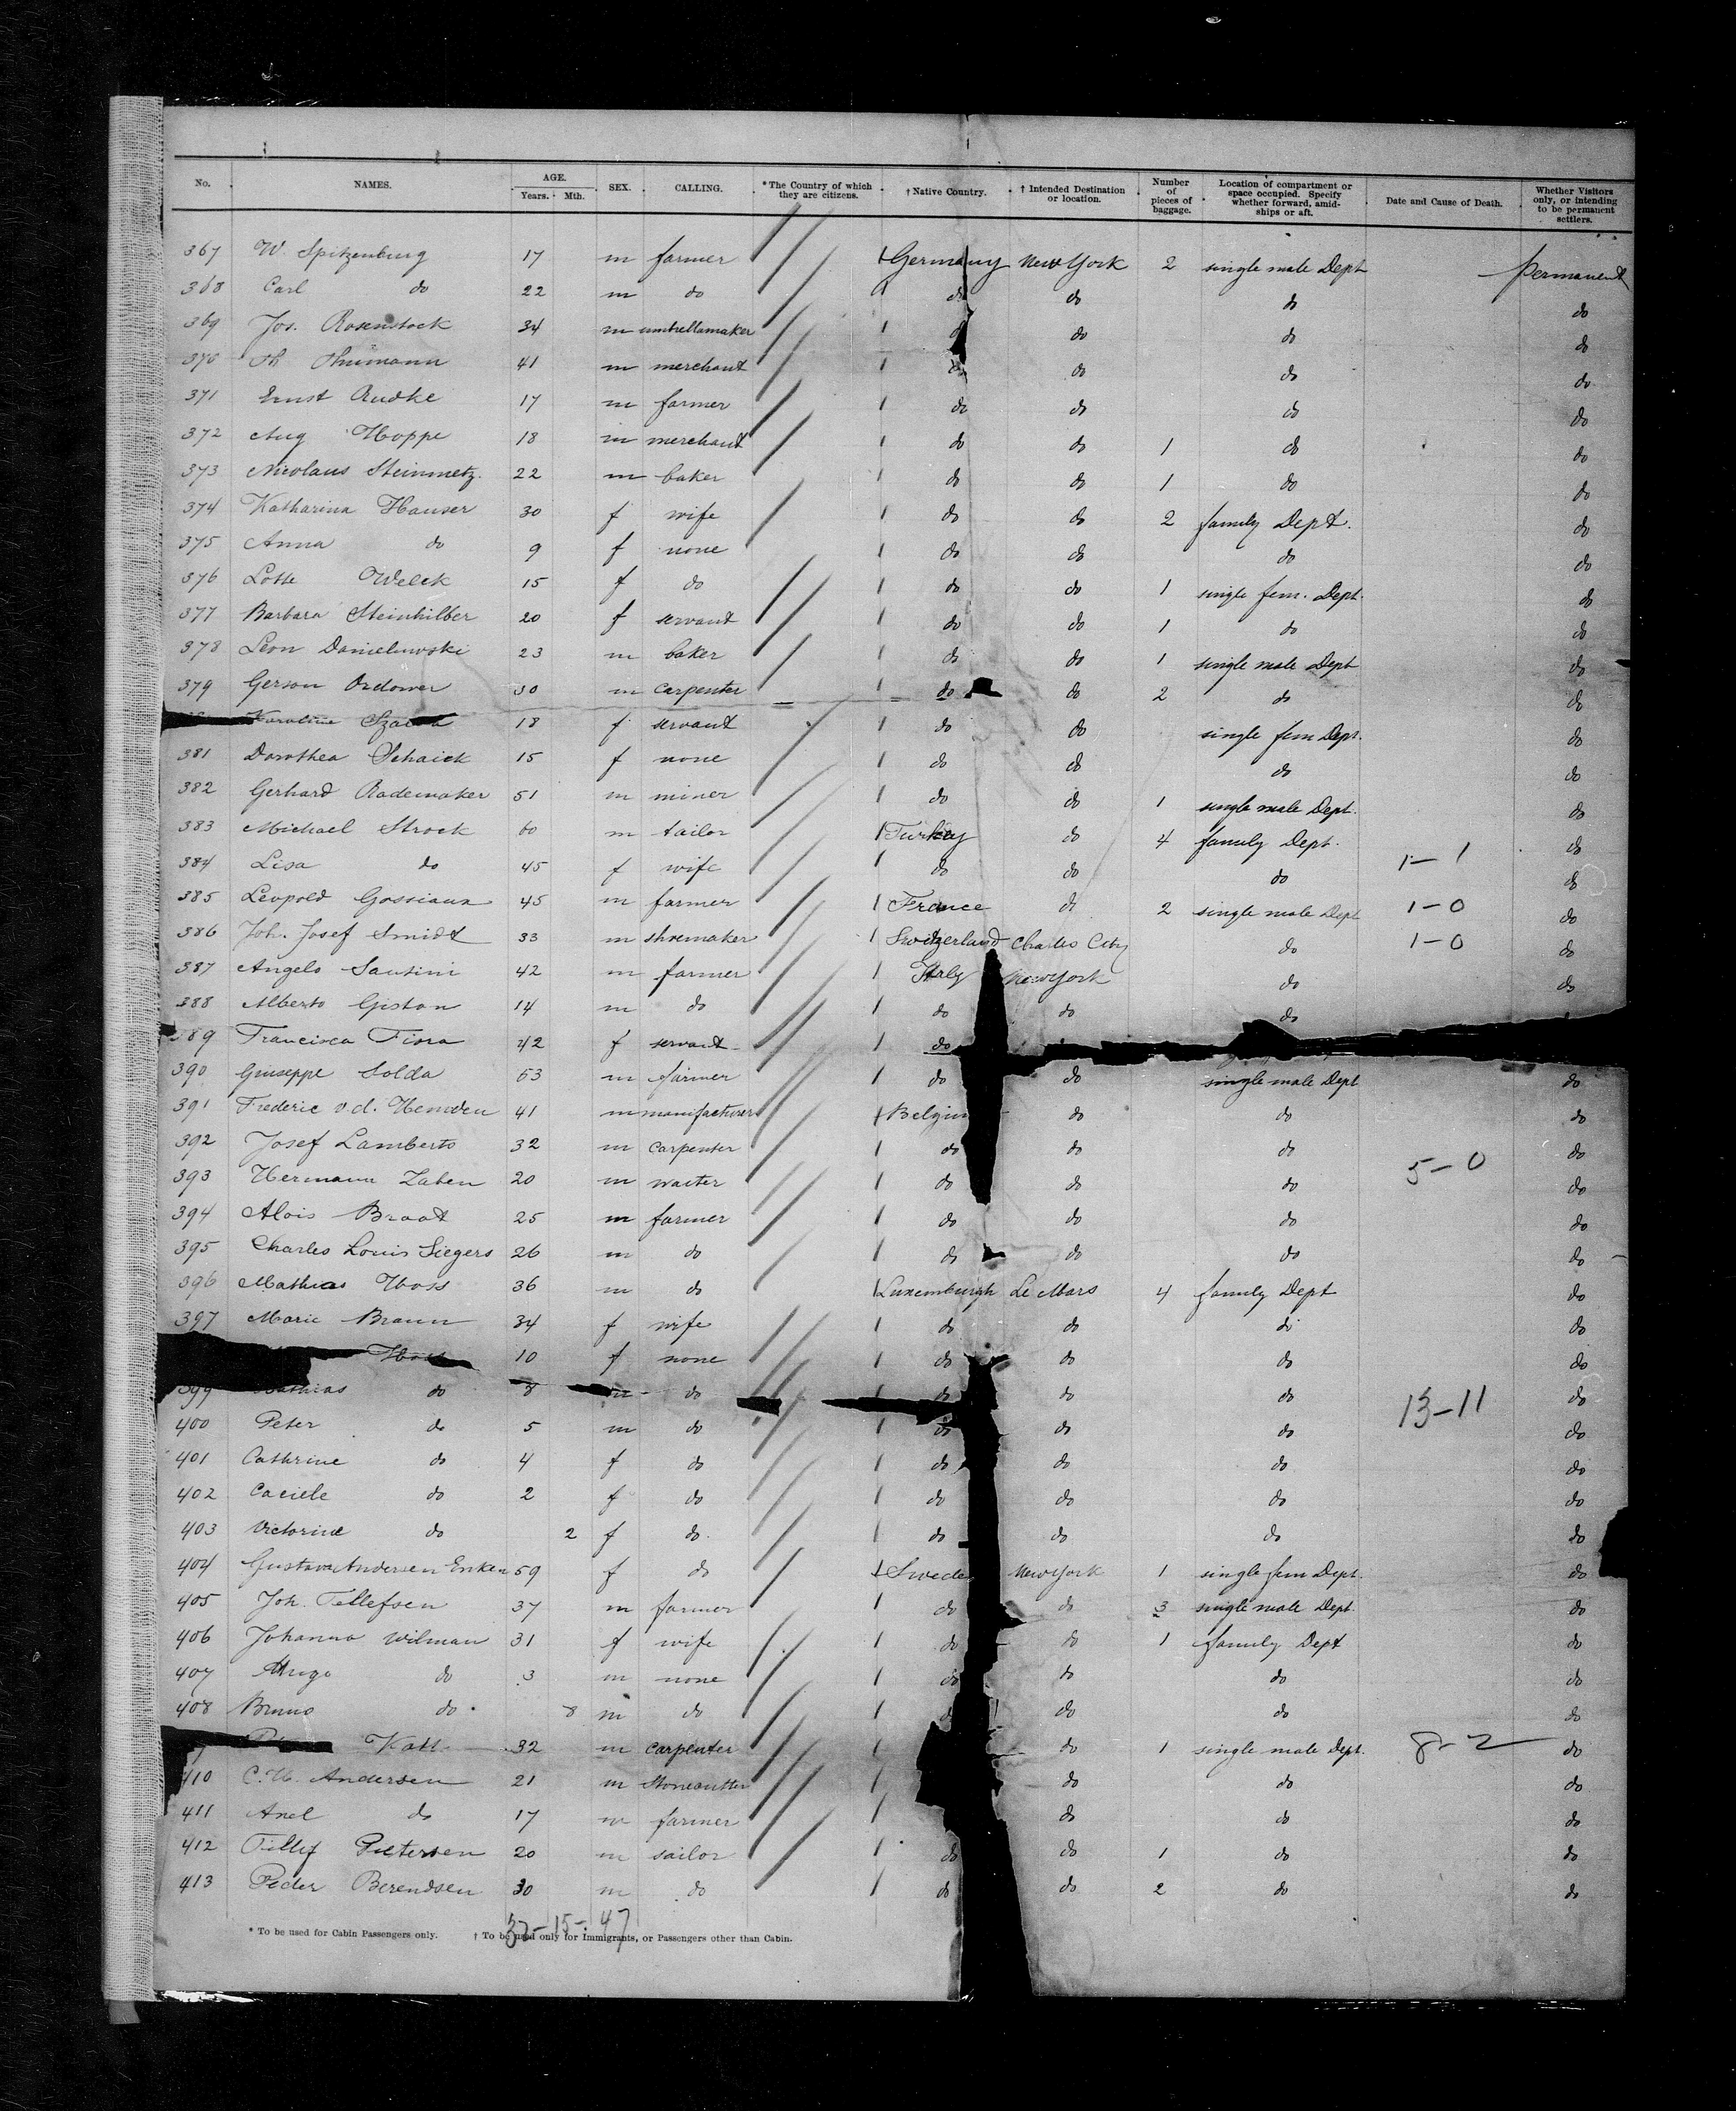 No. NAMES. AGE. Years. Mth. SEX. CALLING. *The Country of which they are citizens. †Native Country. †Intended Destination or location. Number of pieces of baggage. Location of compartment or space occupied. Specify whether forward, amidships or aft. Date and Cause of Death. Whether Visitors only, or intending to be permanent settlers.
367 W. Spitzenburg 17 m farmer 1 Germany New York 2 single male Dept permanent
368 Carl do 22 m do 1 do do do do
369 Jos. Rosenstock 34 m umbrellamaker 1 do do do do
370 Th Thumann 41 m merchant 1 do do do do
371 Ernst Rudke 17 m farmer 1 do do do do
372 Aug Hoppe 18 m merchant 1 do do 1 do do
373 Nicolaus Steinmetz. 22 m baker 1 do do 1 do do
374 Katharina Hauser 30 f wife 1 do do 2 family Dept. do
375 Anna do 9 f none 1 do do do do
376 Lotte Welck 15 f do 1 do do 1 single fem. Dept. do
377 Barbara Steinhilber 20 f servant 1 do do 1 do do
378 Leon Danielewski 23 m baker 1 do do 1 single male Dept do
379 Gerson Ordower 30 m carpenter 1 do do 2 do do
Karoline 18 f servant 1 do do single fem Dept. do
381 Dorothea Schaick 15 f none 1 do do do do
382 Gerhard Rademaker 51 m miner 1 do do 1 single male Dept. do
383 Michael Strock 60 m tailor 1 Turkey do 4 family Dept. do
384 Lisa do 45 f wife 1 do do do 1-1 do
385 Leopold Gossiaux 45 m farmer 1 France do 2 single male Dept 1-0 do
386 Joh. Josef Smidt 33 m shoemaker 1 Switzerland Charles City do 1-0 do
387 Angelo Santini 42 m farmer 1 Italy New York do do
388 Alberto Giston 14 m do 1 do do do
389 Francisca Fiora 42 f servant 1 do
390 Giuseppe Solda 53 m farmer 1 do do single male Dept do
391 Frederic v.d. Hemden 41 m manufacturer 1 Belgium do do do
392 Josef Lamberts 32 m carpenter 1 do do do do
393 Hermann Zaben 20 m waiter 1 do do do 5-0 do
394 Alois Braat 25 m farmer 1 do do do do
395 Charles Louis Siegers 26 m do 1 do do do do
396 Mathias Hoss 36 m do 1 Luxemburgh Le Mars 4 family Dept do
397 Marie Braun 34 f wife 1 do do do do
Hoss 10 f none 1 do do do do
399 Mathias do 8 m do 1 do do do 13-11 do
400 Peter do 5 m do 1 do do do do
401 Cathrine do 4 f do 1 do do do do
402 Caciele do 2 f do 1 do do do do
403 Victorine do 2 f do 1 do do do do
404 Gustava Andersen 59 f do 1 Sweden New York 1 single fem Dept. do
405 Joh. Tellefsen 37 m farmer 1 do do 3 single male Dept. do
406 Johanna Wilman 31 f wife 1 do do 1 family Dept do
407 Hugo do 3 m none 1 do do do do
408 Bruno do 8 m do 1 do do do
Katt 32 m carpenter 1 do 1 single male Dept. 8-2 do
410 C.H. Andersen 21 m stonecutter 1 do do do
411 Axel do 17 m farmer 1 do do do
412 Tillef Pietersen 20 m sailor 1 do do 1 do do
413 Peder Berendsen 30 m do 1 do do 2 do do
32-15-47
* To be used for Cabin Passengers only. † To be used only for Immigrants, or Passengers other than Cabin.